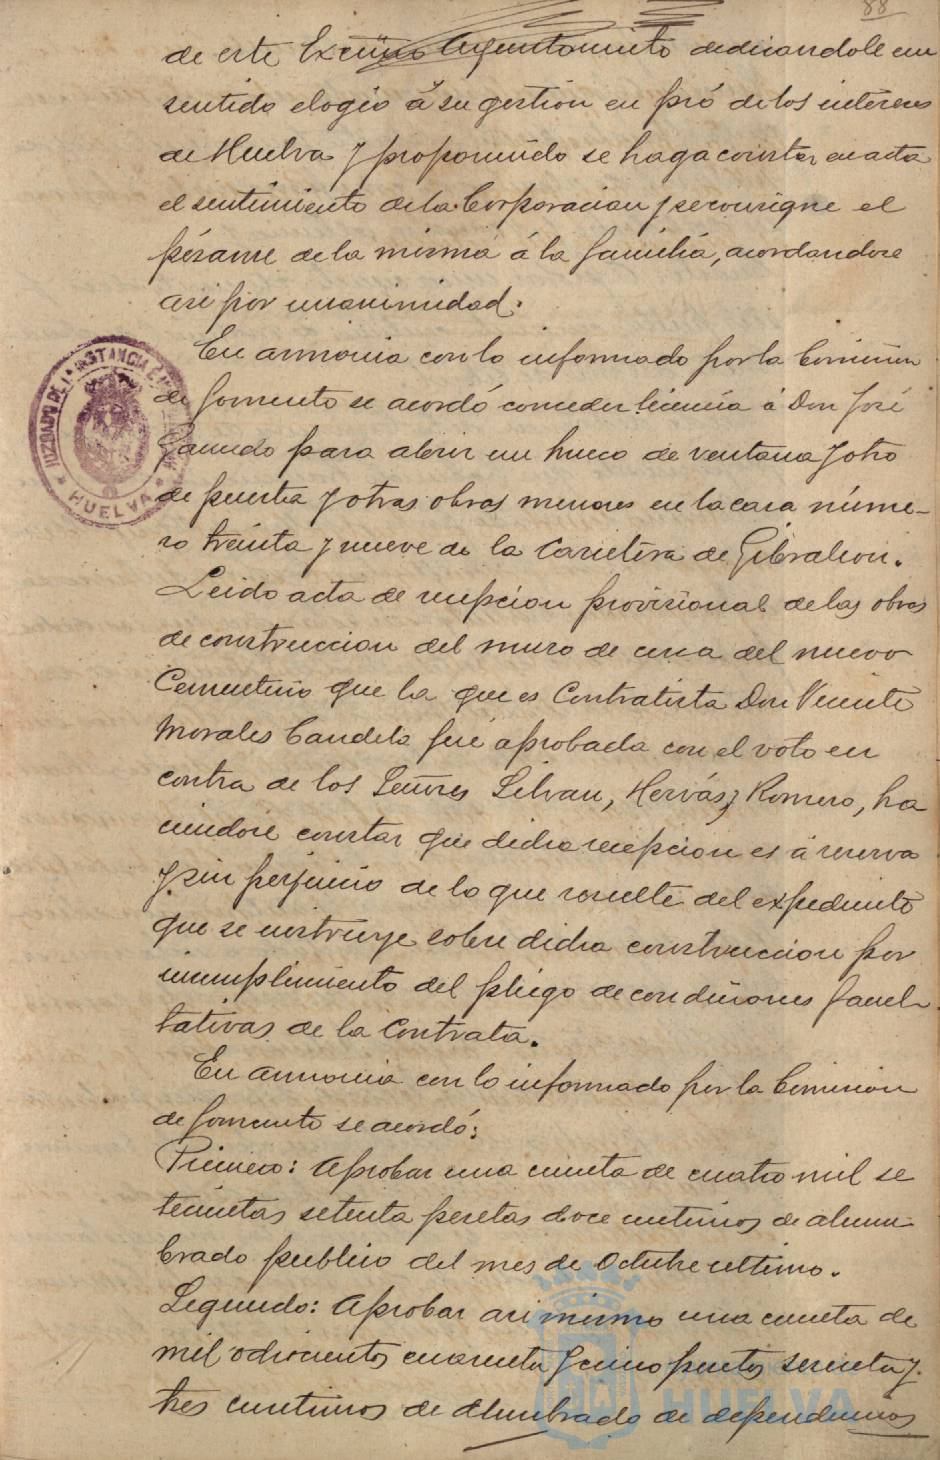 88
de este Excmo Ayuntamiento dedicandole un
sentido elogio á su gestion en pró de los intereses
de Huelva y proponiendo se haga constar en acta
el sentimiento de la Corporacion y se consigne el
pésame de la misma á la familia, acordandose
asi por unanimidad.
En armonia con lo informado por la Comision
de fomento se acordó conceder licencia á Don José
Garrido para abrir un hueco de ventana y otro
de puerta y otras obras menores en la casa núme-
ro treinta y nueve de la Carretera de Gibraleon.
Leido acta de recepcion provisional de las obras
de construccion del muro de cerca del nuevo
Cementerio que la que es Contratista Don Vicente
Morales Candela fué aprobada con el voto en
contra de los Señores Silvan, Hervás y Romero, ha
ciendose constar que dicha recepcion es á reserva
y sin perjuicio de lo que resulte del expediente
que se instruye sobre dicha construccion por
incumplimiento del pliego de condiciones facul-
tativas de la Contrata.
En armonia con lo informado por la Comision
de fomento se acordó:
Primero: Aprobar una cuenta de cuatro mil se
tecientas setenta pesetas doce centimos de alum-
brado publico del mes de Octubre ultimo.
Segundo: Aprobar asi mismo una cuenta de
mil ochocientos cuarenta y cinco pesetas sesenta y
tres centimos de alumbrado de dependencias
JUZGADO DE 1ª INSTANCIA
HUELVA
HUELVA